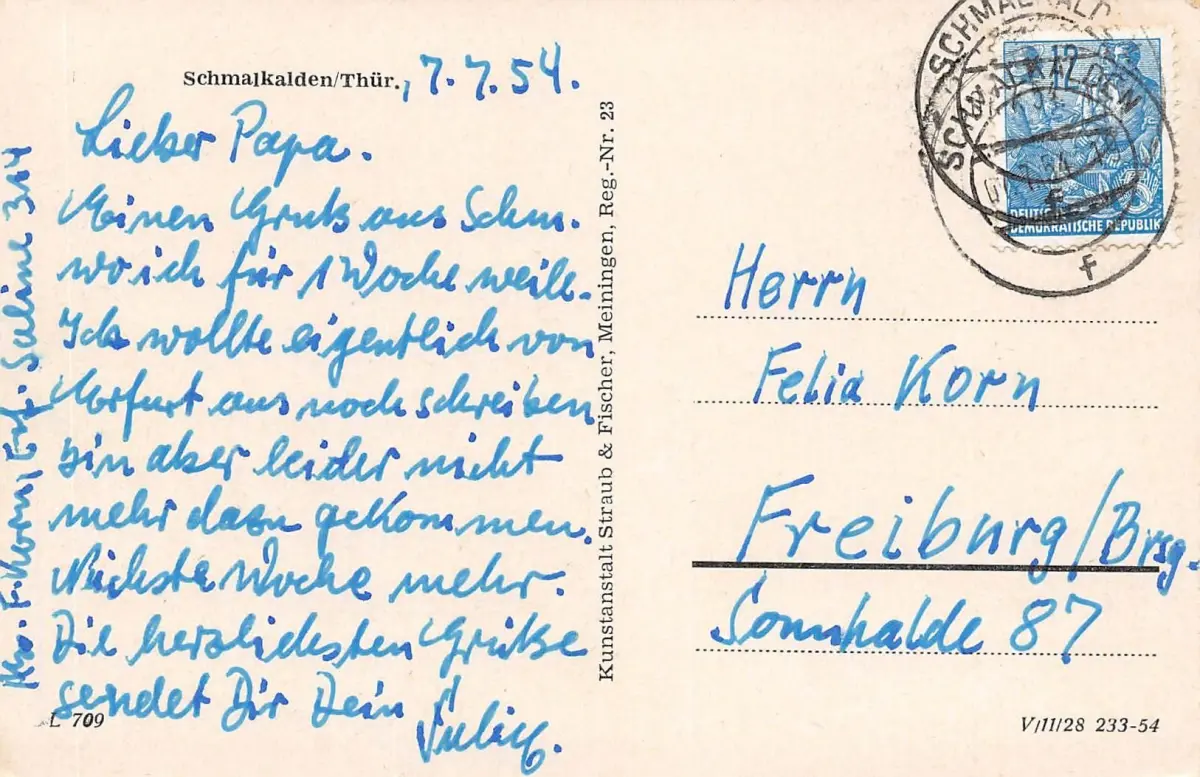 Schmalkalden/Thür., 7.7.54.
Lieber Papa.
Meinen Gruß aus Schm.
wo ich für 1 Woche weile.
Ich wollte eigentlich von
Erfurt aus noch schreiben
bin aber leider nicht
mehr dazu gekommen.
Nächste Woche mehr.
Die herzlichsten Grüße
sendet Dir Dein
L 709
Korn, Erf. Saline 314
Kunstanstalt Straub & Fischer, Meiningen, Reg.-Nr. 23
SCHMALKALDEN
SCHMALKALDEN
f
f
12
DEUTSCHE
DEMOKRATISCHE REPUBLIK
Herrn
Felix Korn
Freiburg/Brsg.
Sonnhalde 87
V/11/28 233-54